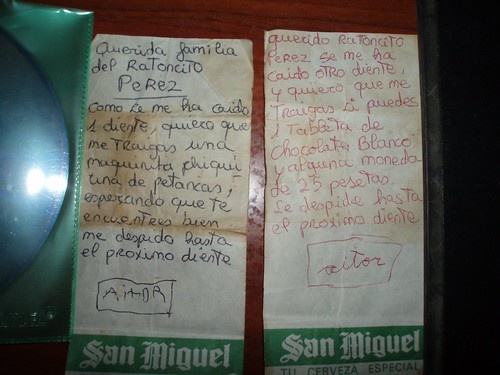 Querida familia
del RaToncito
PeREZ
como se me ha caido
1 diente, quiero que
me TRaigas una
maquinita
una de petancas,
esperando que te
encuentres bien
me despido hasta
el proximo diente
AiTOR
San Miguel
querido RaToncito
PeREZ se me ha
caido otro diente,
y quiero que me
TRaigas si puedes
1 Tableta de
chocolate Blanco
y alguna moneda
de 25 pesetas.
Se despide hasta
el proximo diente
aitor
San Miguel
TU CERVEZA ESPECIAL